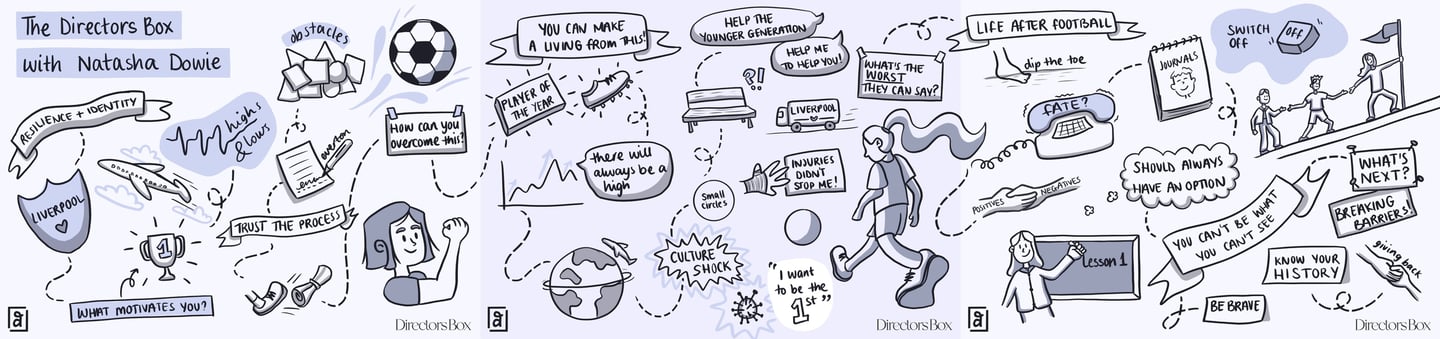 The Directors Box
with Natasha Dowie
obstacles
RESILIENCE + IDENTITY
highs
& lows
How can you
overcome this?
everton
LIVERPOOL
TRUST THE PROCESS
1
WHAT MOTIVATES YOU?
DirectorsBox
YOU CAN MAKE
A LIVING FROM THIS!
HELP THE
YOUNGER GENERATION
HELP ME
TO HELP YOU!
WHAT'S THE
WORST
THEY CAN SAY?
PLAYER OF
THE YEAR
?!
LIVERPOOL
there will
always be a
high
INJURIES
DIDN'T
STOP ME!
Small
circles
CULTURE
SHOCK
"I want
to be the
1st"
DirectorsBox
LIFE AFTER FOOTBALL
dip the toe
JOURNALS
SWITCH
OFF
OFF
FATE?
SHOULD ALWAYS
HAVE AN OPTION
WHAT'S
NEXT?
POSITIVES
NEGATIVES
BREAKING
BARRIERS!
YOU CAN'T BE WHAT
YOU CAN'T SEE
Lesson 1
KNOW YOUR
HISTORY
giving back
BE BRAVE
DirectorsBox